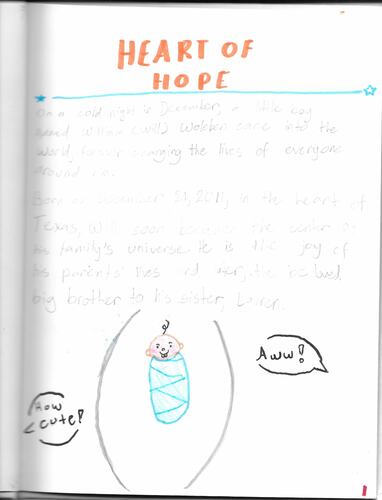 HEART OF
HOPE
On a cold night in December, a little boy
named William (Will) came into the
world, forever changing the lives of everyone
around him.
Born on December 21, 2011, in the heart of
Texas, Will soon became the center of
his family's universe. He is the joy of
his parents' lives and later, the beloved
big brother to his sister, Lauren.
Aww!
How
cute!
1